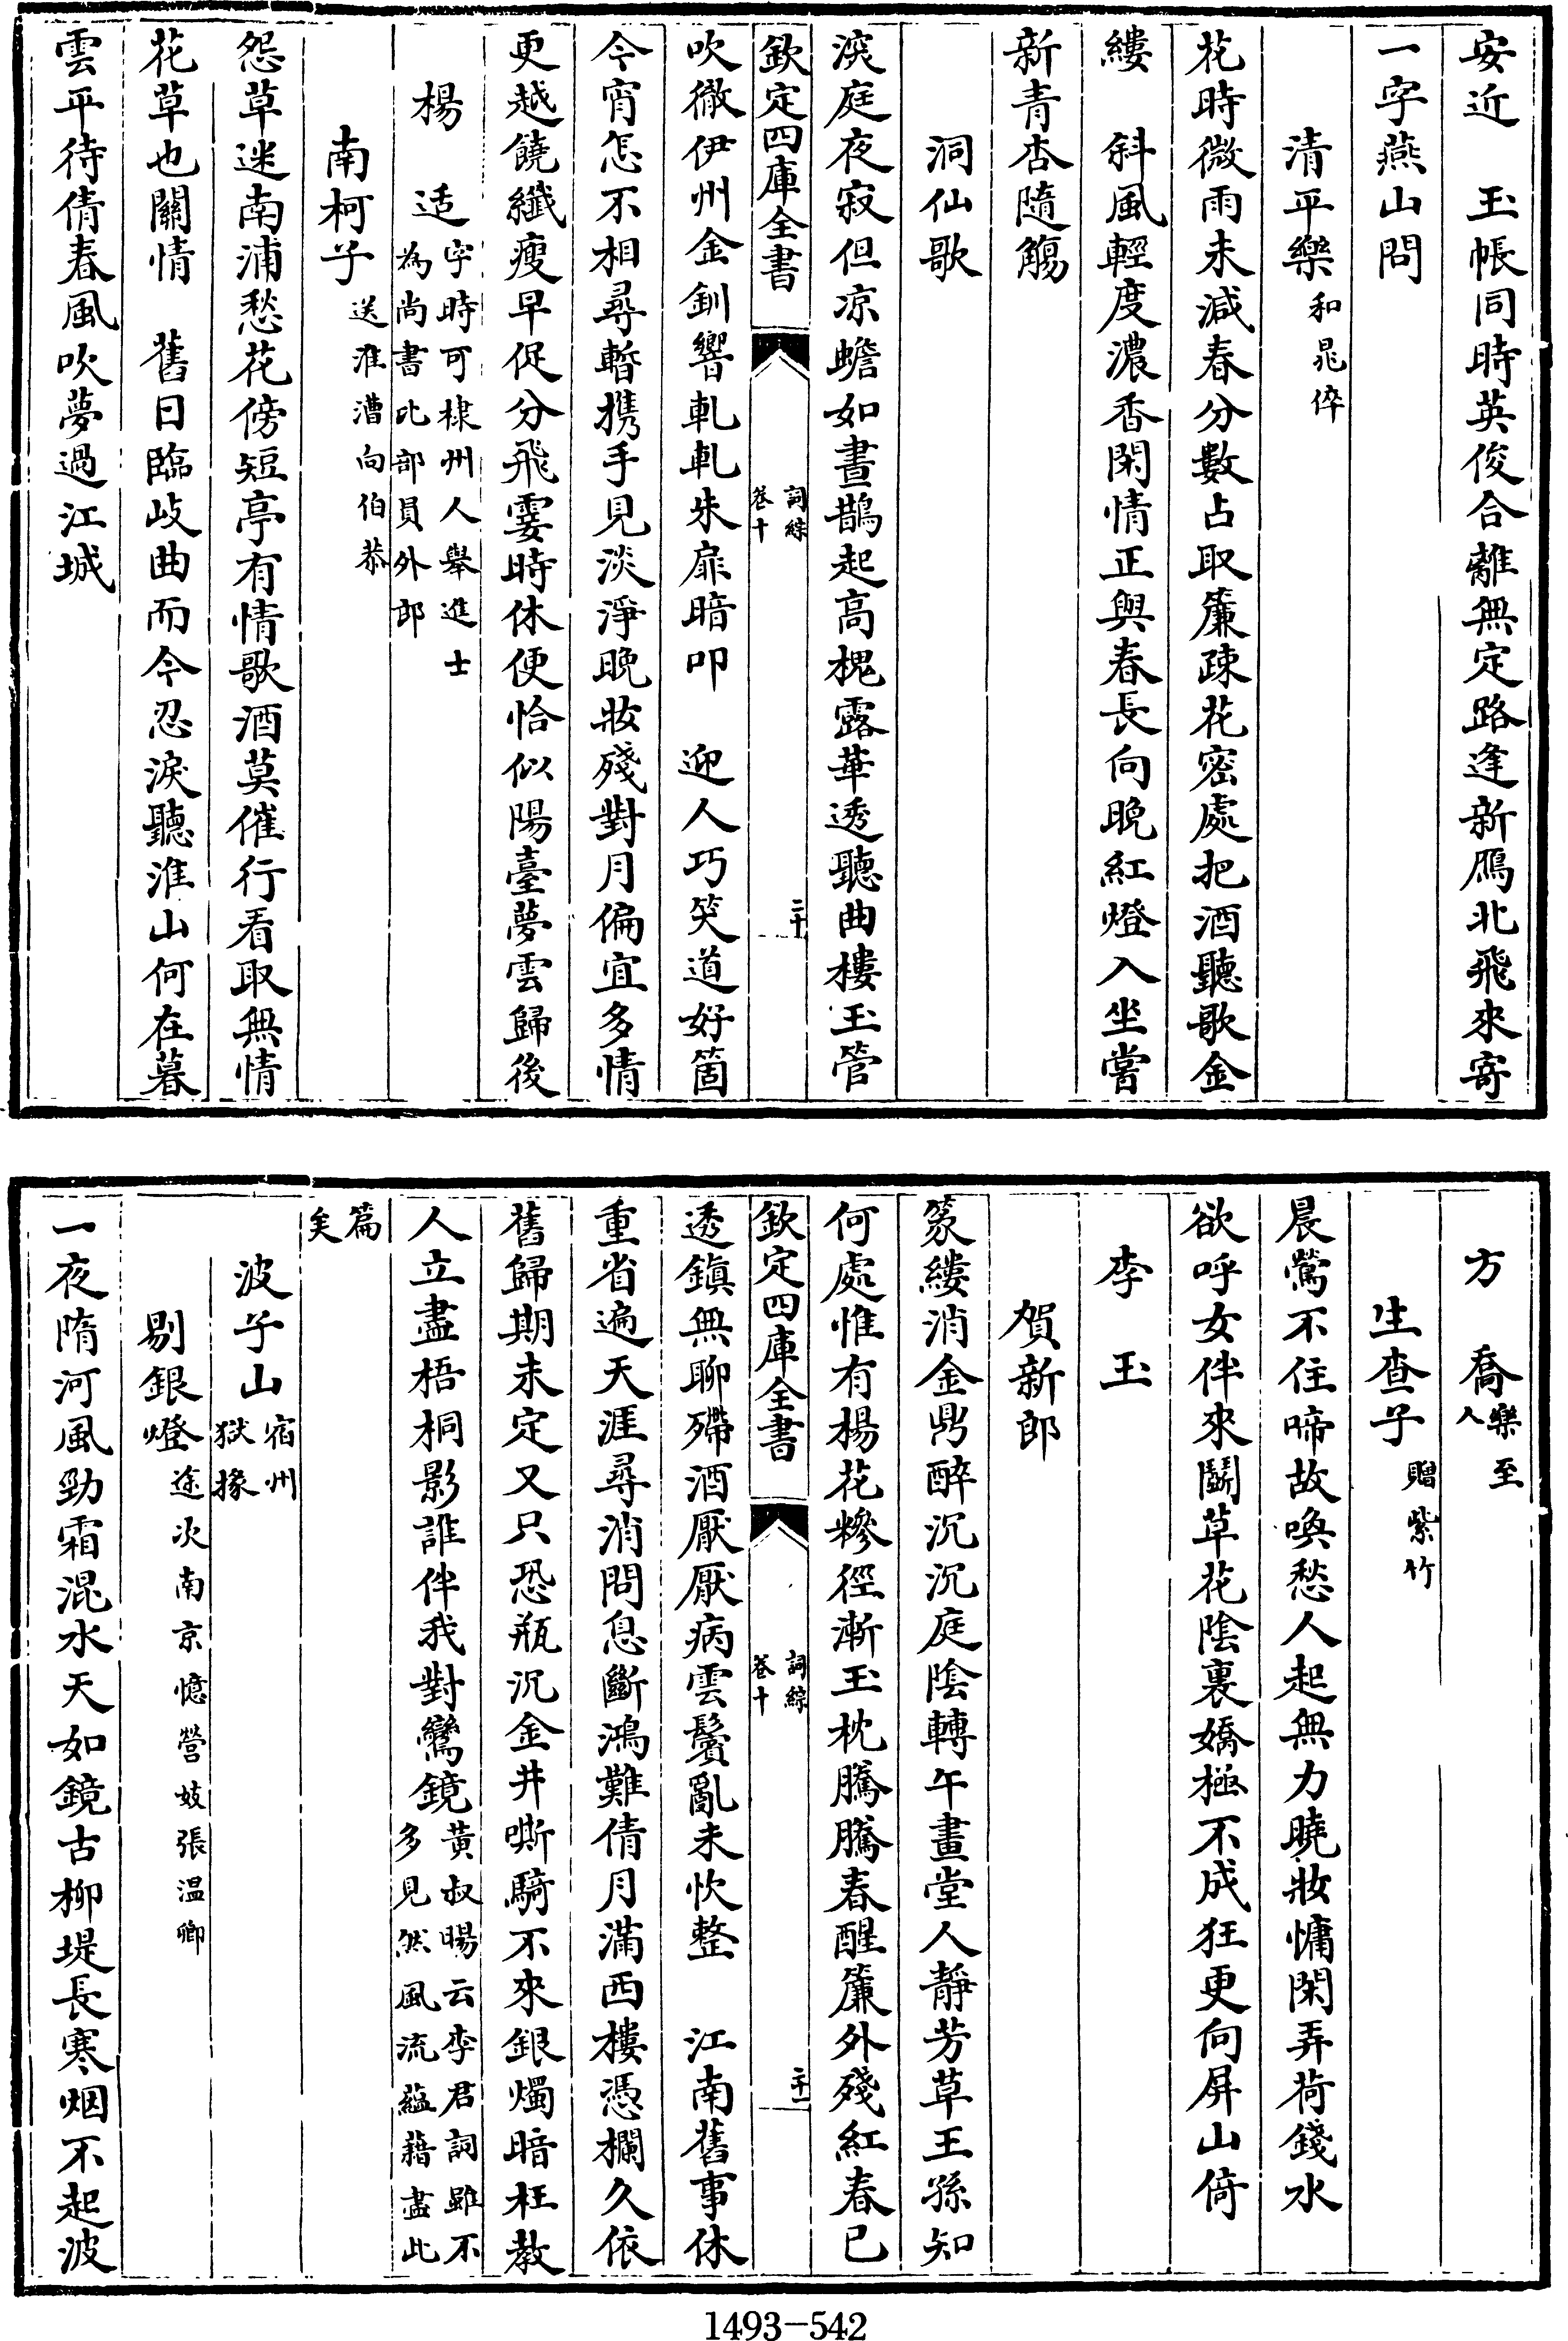 安近　玉帳同時英俊合離無定路逢新鴈北飛來寄
一字燕山問
清平樂和晁倅
花時微雨未減春分數占取簾疎花密處把酒聽歌金
縷　斜風輕度濃香閑情正與春長向晚紅燈入坐嘗
新青杏隨觴
洞仙歌
深庭夜寂但凉蟾如晝鵲起高槐露華透聽曲樓玉管
欽定四庫全書
詞綜
卷十
二十
吹徹伊州金釧響軋軋朱扉暗叩　迎人巧笑道好箇
今宵怎不相尋暫携手見淡淨晚妝殘對月偏宜多情
更越饒纖瘦早促分飛霎時休便恰似陽臺夢雲歸後
楊　适字時可棣州人舉進士
為尚書比部員外郎
南柯子送淮漕向伯恭
怨草迷南浦愁花傍短亭有情歌酒莫催行看取無情
花草也關情　舊日臨岐曲而今忍淚聽淮山何在暮
雲平待倩春風吹夢過江城
方　喬樂至
人
生查子贈紫竹
晨鶯不住啼故喚愁人起無力曉妝慵閑弄荷錢水
欲呼女伴來鬭草花陰裏嬌極不成狂更向屏山倚
李　玉
賀新郎
篆縷消金鼎醉沉沉庭陰轉午畫堂人靜芳草王孫知
何處惟有楊花糝徑漸玉枕騰騰春醒簾外殘紅春已
欽定四庫全書
詞綜
卷十
二十一
透鎮無聊殢酒厭厭病雲鬢亂未忺整　江南舊事休
重省遍天涯尋消問息斷鴻難倩月滿西樓憑欄久依
舊歸期未定又只恐瓶沉金井嘶騎不來銀燭暗枉教
人立盡梧桐影誰伴我對鸞鏡黄叔暘云李君詞雖不
多見然風流蘊藉盡此
篇
矣
波子山宿州
獄掾
剔銀燈途次南京憶營妓張温卿
一夜隋河風勁霜混水天如鏡古柳堤長寒烟不起波
1493-542